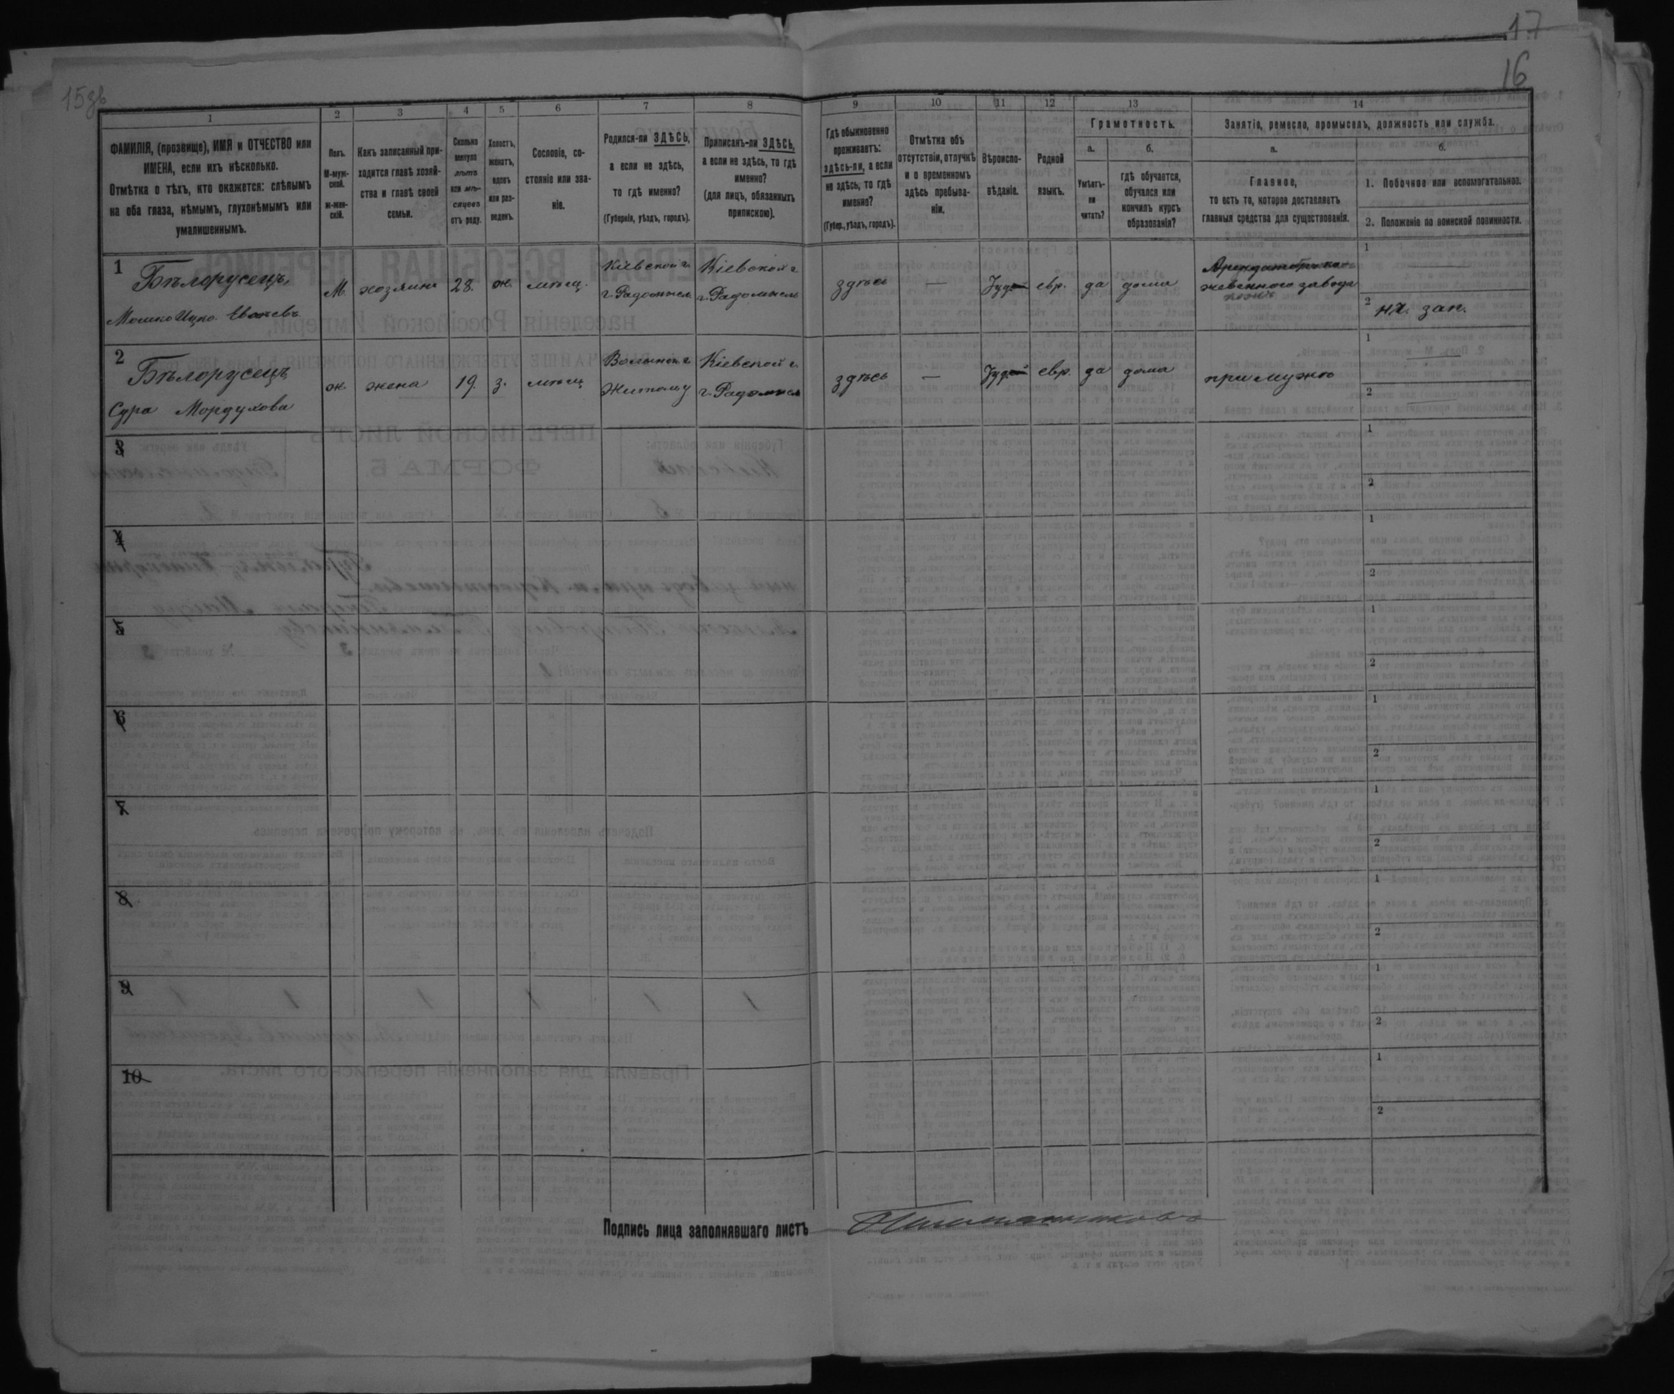 17
16
15зв
1
2
3
4
5
6
7
8
9
10
11
12
13
14
ФАМИЛІЯ, (прозвище), ИМЯ и ОТЧЕСТВО или
ИМЕНА, если ихъ нѣсколько.
Отмѣтка о тѣхъ, кто окажется: слѣпымъ
на оба глаза, нѣмымъ, глухонѣмымъ или
умалишеннымъ.
Полъ.
М-муж-
ской.
ж-жен-
скій.
Какъ записанный при-
ходится главѣ хозяй-
ства и главѣ своей
семьи.
Сколько
минуло
лѣтъ
или мѣ-
сяцевъ
отъ роду.
Холостъ,
женатъ,
вдовъ
или раз-
веденъ.
Сословіе, со-
стояніе или зва-
ніе.
Родился-ли ЗДѢСЬ,
а если не здѣсь,
то гдѣ именно?
(Губернія, уѣздъ, городъ).
Приписанъ-ли ЗДѢСЬ,
а если не здѣсь, то гдѣ
именно?
(для лицъ, обязанныхъ
припискою).
Гдѣ обыкновенно
проживаетъ:
здѣсь-ли, а если
не здѣсь, то гдѣ
именно?
(Губер., уѣздъ, городъ).
Отмѣтка объ
отсутствіи, отлучкѣ
и о временномъ
здѣсь пребыва-
ніи.
Вѣроиспо-
вѣданіе.
Родной
языкъ.
Грамотность.
а.
Умѣетъ-
ли
читать?
б.
гдѣ обучается,
обучался или
кончилъ курсъ
образованія?
Занятіе, ремесло, промыселъ, должность или служба.
а.
Главное,
то есть то, которое доставляетъ
главныя средства для существованія.
б.
1. Побочное или вспомогательное.
2. Положеніе по воинской повинности.
1
Бѣлорусецъ,
Мошко Ицко Евсеевъ
М. хозяинъ 28. ж. мѣщ. Кіевской г. Кіевской г.
г. Радомысль г. Радомысль
здѣсь — Іуд. евр. да дома
Арендаторъ ко-
жевеннаго завода
1
2 нх. зап.
2
Бѣлорусецъ
Сура Мордухова
ж. жена 19. з. мѣщ Волынск. г. Кіевской г.
Житомір г. Радомысль
здѣсь — Іуд. евр. да дома при мужѣ
1
2
3
1
2
4
1
2
5
1
2
6
1
2
7
1
2
8
1
2
9
1
2
10
1
2
Подпись лица заполнявшаго листъ